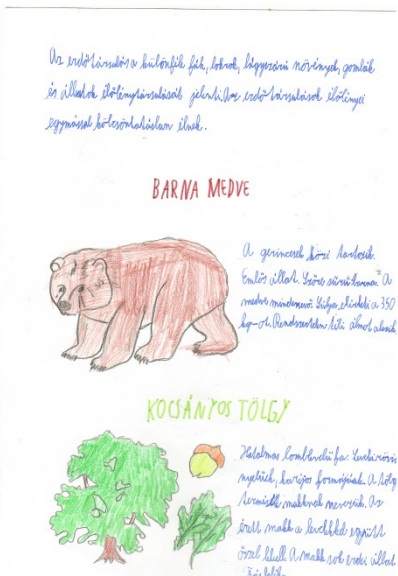 Az erdőtársulás a különféle fák, bokrok, lágyszárú növények, gombák
és állatok élőlénytársulását jelenti. Az erdőtársulások élőlényei
egymással kölcsönhatásban élnek.
BARNA MEDVE
A gerincesek közé tartozik.
Emlős állat. Szőre sűrű barna. A
medve mindenevő. Súlya elérheti a 350
kg-ot. Rendszertelen téli álmot alszik.
KOCSÁNYOS TÖLGY
Hatalmas lomblevelű fa. Levelei rövid
nyelűek, karéjos formájúak. A tölgy
termését makknak nevezzük. Az
érett makk a levelekkel együtt
ősszel lehull. A makk sok erdei állat